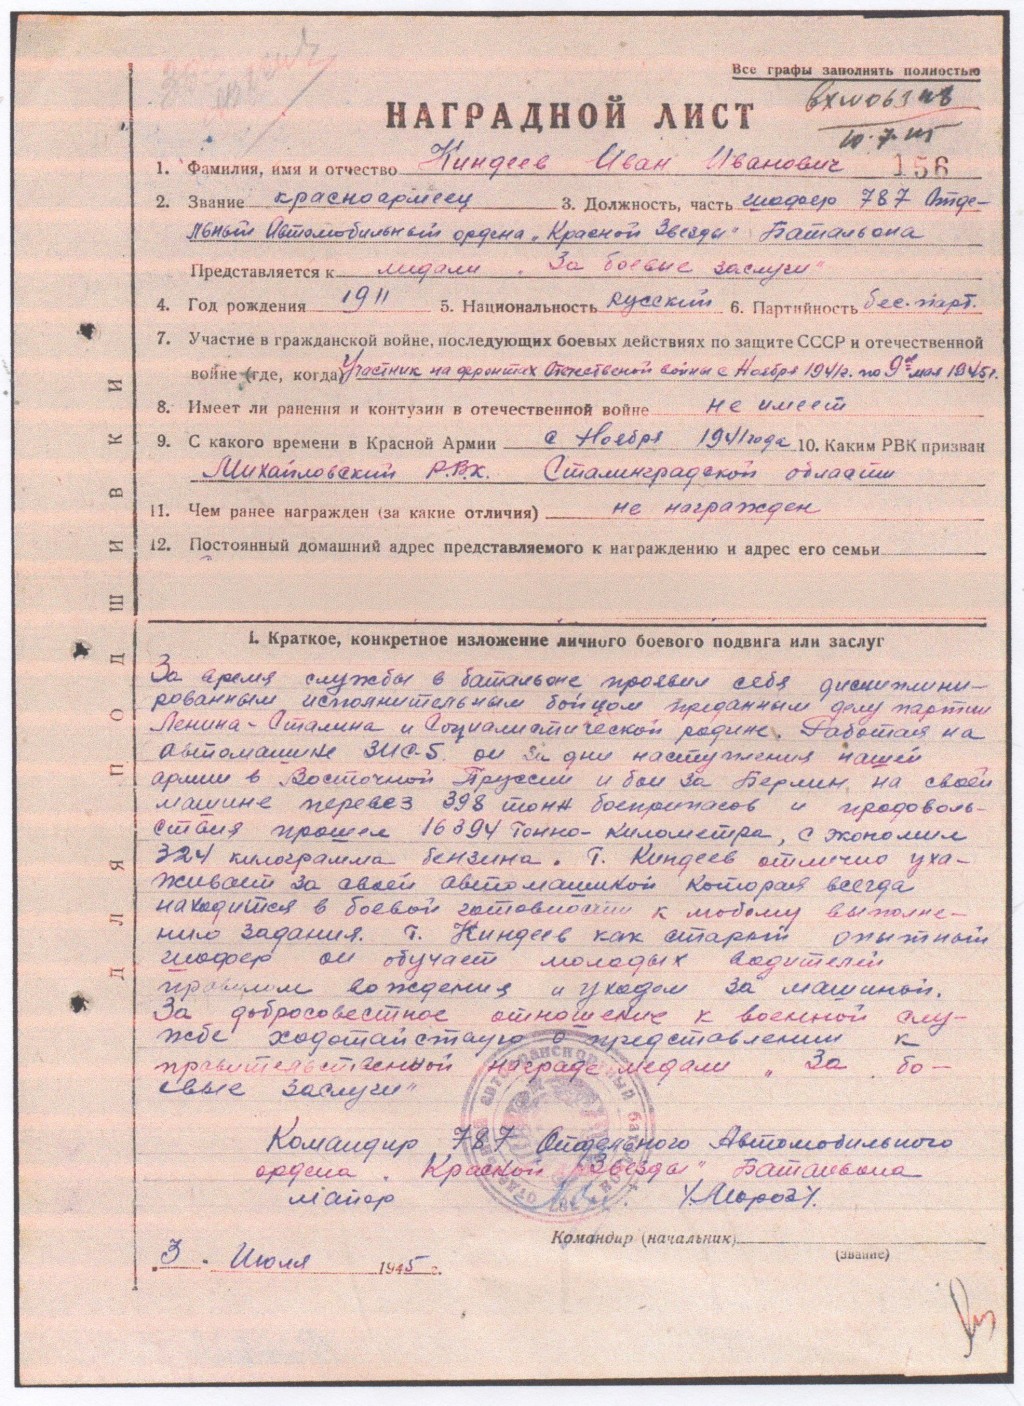 Все графы заполнять полностью
НАГРАДНОЙ ЛИСТ
10.7.45
1. Фамилия, имя и отчество Киндеев Иван Иванович 156
2. Звание красноармеец 3. Должность, часть шофер 787 Отде-
льный Автомобильный ордена „Красной Звезды" Батальона
Представляется к медали „За боевые заслуги"
4. Год рождения 1911 5. Национальность русский 6. Партийность бес. парт.
7. Участие в гражданской войне, последующих боевых действиях по защите СССР и отечественной
войне (где, когда) Участник на фронтах Отечественной войны с Ноября 1941г. по 9ое мая 1945г.
8. Имеет ли ранения и контузии в отечественной войне не имеет
9. С какого времени в Красной Армии с Ноября 1941 года 10. Каким РВК призван
Михайловский Р.В.К. Сталинградской области
11. Чем ранее награжден (за какие отличия) не награжден
12. Постоянный домашний адрес представляемого к награждению и адрес его семьи
ДЛЯ ПОДШИВКИ
I. Краткое, конкретное изложение личного боевого подвига или заслуг
За время службы в батальоне проявил себя дисциплини-
рованным исполнительным бойцом преданным делу партии
Ленина-Сталина и Социалистической родине. Работая на
автомашине ЗИС-5 он за дни наступления нашей
армии в Восточной Пруссии и бои за Берлин на своей
машине перевез 398 тонн боеприпасов и продоволь-
ствия прошел 16394 тонно-километра, с экономил
324 килограмма бензина. Т. Киндеев отлично уха-
живает за своей автомашиной которая всегда
находится в боевой готовности к любому выполне-
нию задания. т. Киндеев как старый опытный
шофер он обучает молодых водителей
правилом вождения и уходом за машиной.
За добросовестное отношение к военной слу-
жбе ходотайствую о представлении к
правительственной награде медали „За бо-
евые заслуги"
Командир 787 Отдельного Автомобильного
ордена „Красной Звезды" Батальона
майор /Мороз/.
Командир (начальник)
(звание)
„3" Июля 1945 г.